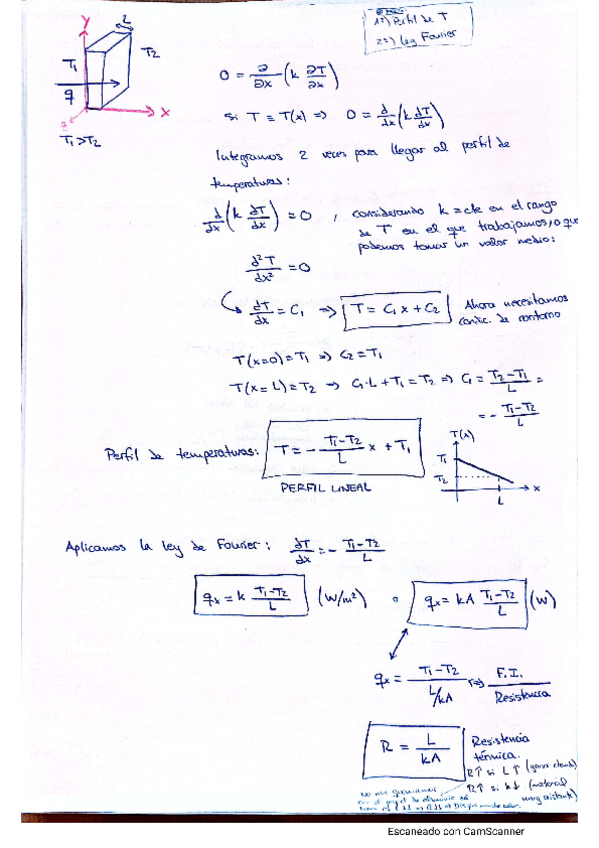 1º) Perfil de T
2º) Ley Fourier
y
L
T₁
T₂
q
x
z
T₁>T₂
0 = ∂/∂x (k ∂T/∂x)
si T = T(x) => 0 = d/dx (k dT/dx)
Integramos 2 veces para llegar al perfil de
temperaturas:
d/dx (k dT/dx) = 0 , considerando k = cte en el rango
de T en el que trabajamos, o que
podemos tomar un valor medio:
d²T/dx² = 0
dT/dx = C₁ => T = C₁x + C₂ Ahora necesitamos
condic. de contorno
T(x=0) = T₁ => C₂ = T₁
T(x=L) = T₂ → C₁·L + T₁ = T₂ => C₁ = (T₂-T₁)/L =
= - (T₁-T₂)/L
Perfil de temperaturas: T = - (T₁-T₂)/L x + T₁
PERFIL LINEAL
T(x)
T₁
T₂
x
L
Aplicamos la ley de Fourier: dT/dx = - (T₁-T₂)/L
qx = k (T₁-T₂)/L (W/m²) o qx = kA (T₁-T₂)/L (W)
qx = (T₁-T₂)/(L/kA) => F.I./Resistencia
R = L/kA Resistencia
térmica.
R↑ si L↑
R↑ si k↓ (material
muy aislante)
Escaneado con CamScanner